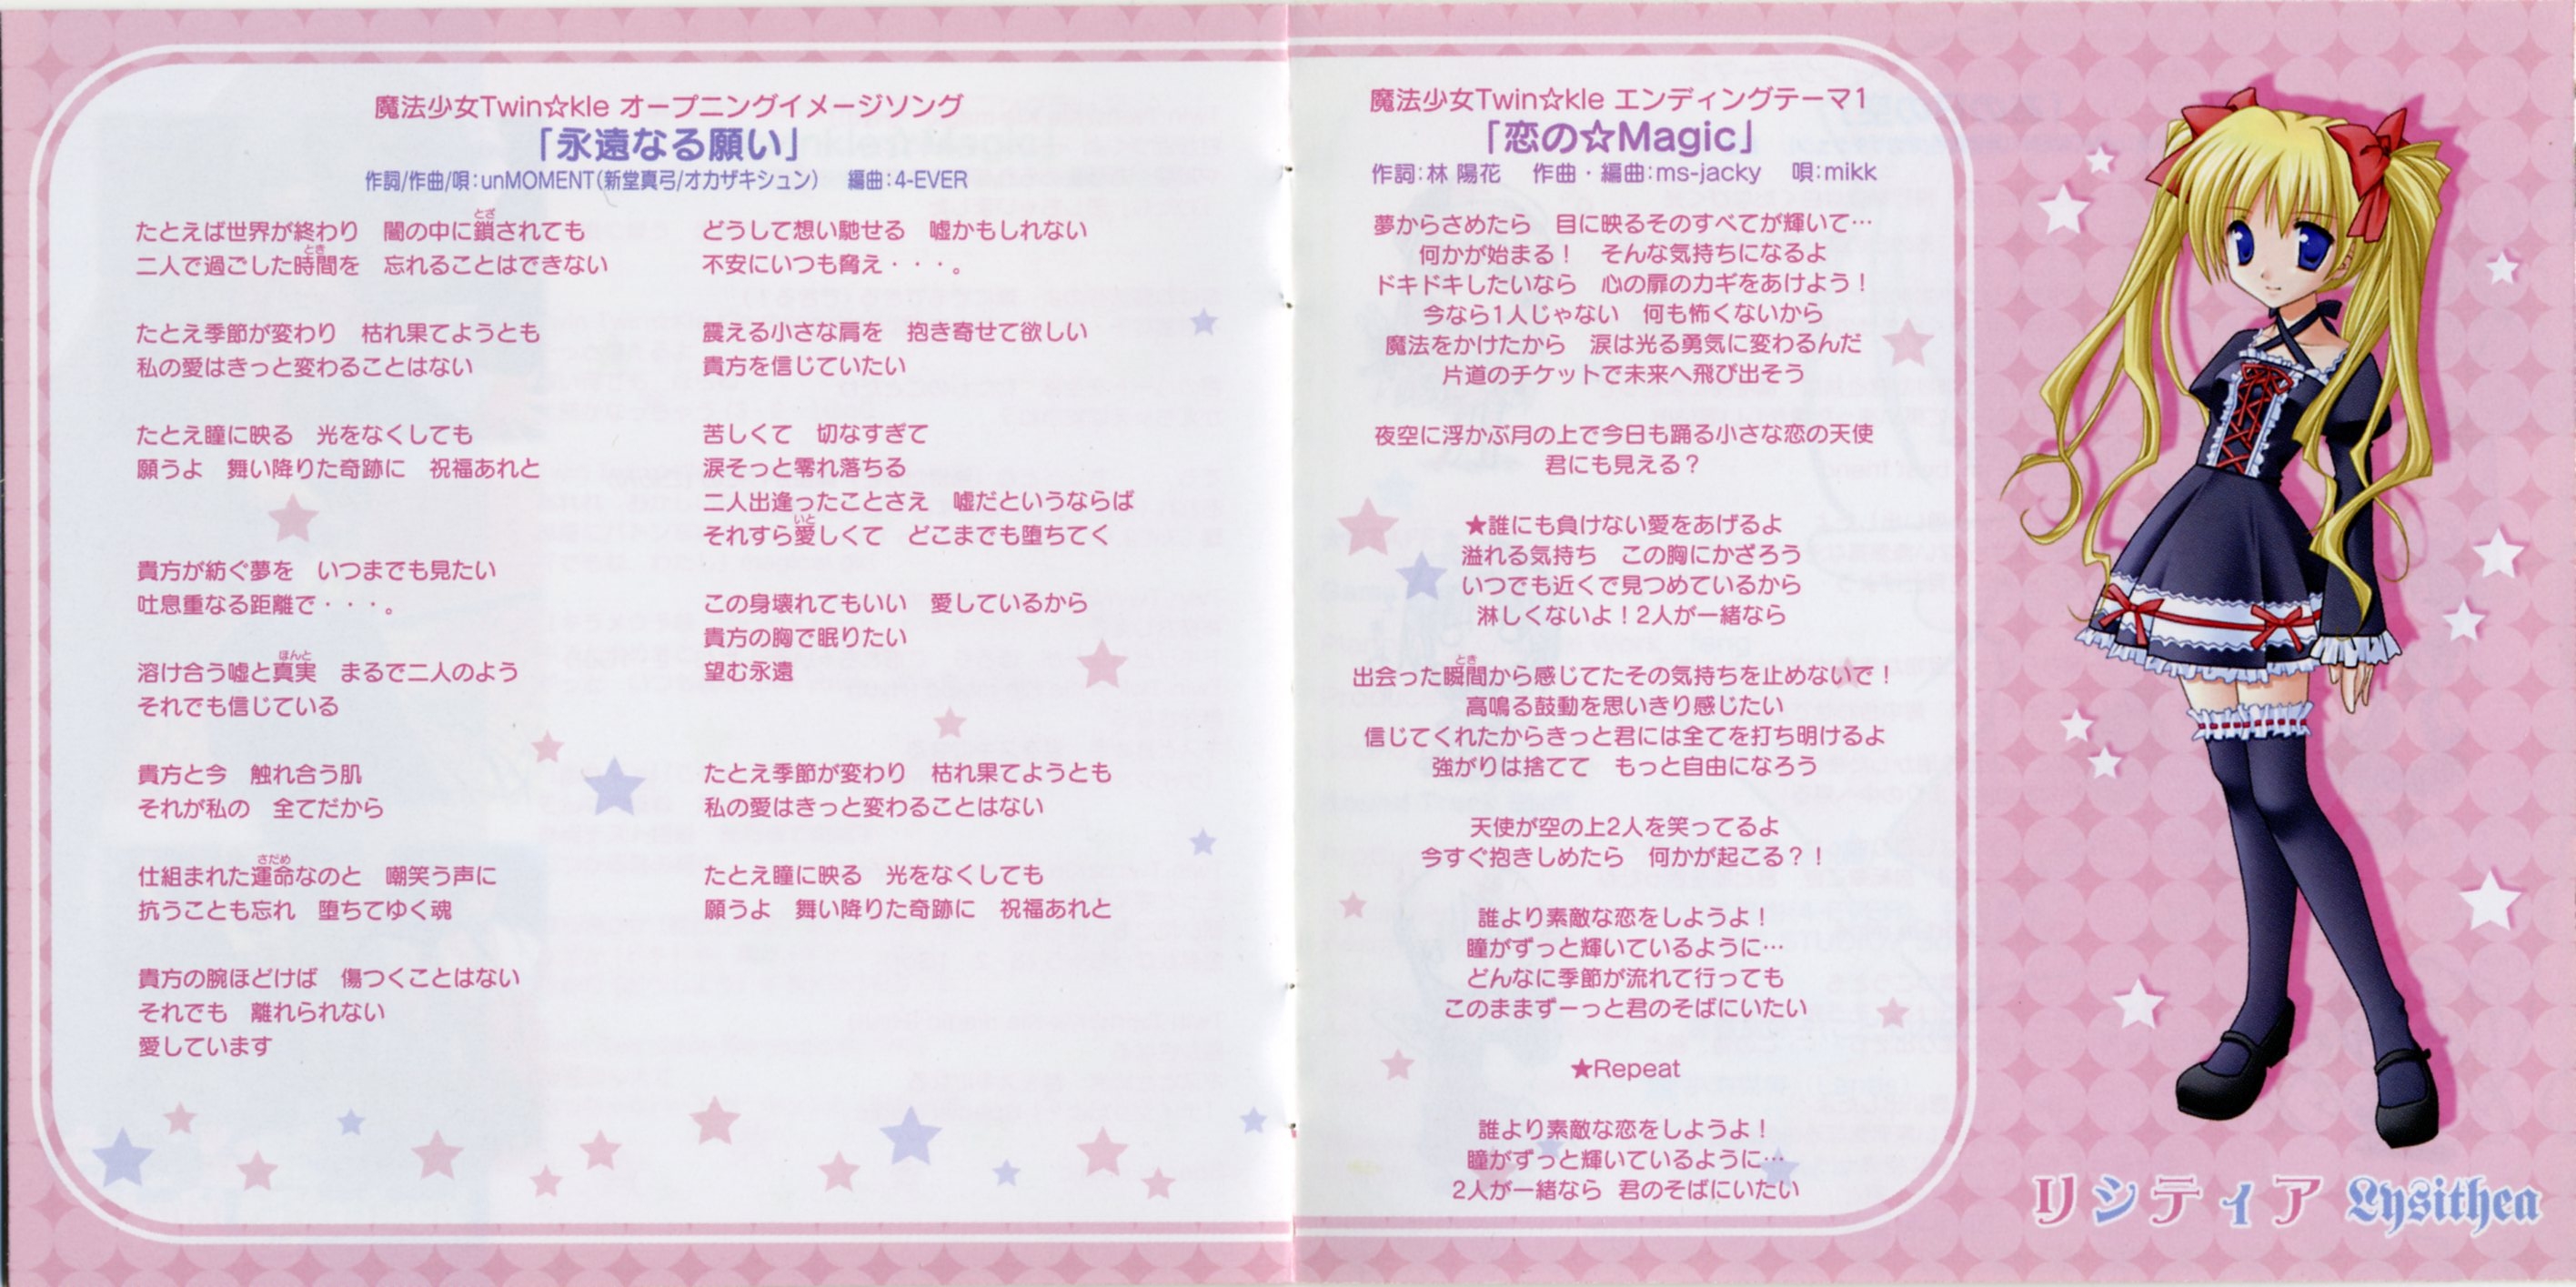 魔法少女Twin☆kle オープニングイメージソング
「永遠なる願い」
作詞/作曲/唄：unMOMENT（新堂真弓/オカザキシュン）　編曲：4-EVER
たとえば世界が終わり　闇の中に鎖されても
とざ
二人で過ごした時間を　忘れることはできない
とき
たとえ季節が変わり　枯れ果てようとも
私の愛はきっと変わることはない
たとえ瞳に映る　光をなくしても
願うよ　舞い降りた奇跡に　祝福あれと
貴方が紡ぐ夢を　いつまでも見たい
吐息重なる距離で・・・。
溶け合う嘘と真実　まるで二人のよう
ほんと
それでも信じている
貴方と今　触れ合う肌
それが私の　全てだから
仕組まれた運命なのと　嘲笑う声に
さだめ
抗うことも忘れ　堕ちてゆく魂
貴方の腕ほどけば　傷つくことはない
それでも　離れられない
愛しています
どうして想い馳せる　嘘かもしれない
不安にいつも脅え・・・。
震える小さな肩を　抱き寄せて欲しい
貴方を信じていたい
苦しくて　切なすぎて
涙そっと零れ落ちる
二人出逢ったことさえ　嘘だというならば
それすら愛しくて　どこまでも堕ちてく
いと
この身壊れてもいい　愛しているから
貴方の胸で眠りたい
望む永遠
たとえ季節が変わり　枯れ果てようとも
私の愛はきっと変わることはない
たとえ瞳に映る　光をなくしても
願うよ　舞い降りた奇跡に　祝福あれと
魔法少女Twin☆kle エンディングテーマ1
「恋の☆Magic」
作詞：林 陽花　作曲・編曲：ms-jacky　唄：mikk
夢からさめたら　目に映るそのすべてが輝いて…
何かが始まる！　そんな気持ちになるよ
ドキドキしたいなら　心の扉のカギをあけよう！
今なら1人じゃない　何も怖くないから
魔法をかけたから　涙は光る勇気に変わるんだ
片道のチケットで未来へ飛び出そう
夜空に浮かぶ月の上で今日も踊る小さな恋の天使
君にも見える？
★誰にも負けない愛をあげるよ
溢れる気持ち　この胸にかざろう
いつでも近くで見つめているから
淋しくないよ！2人が一緒なら
出会った瞬間から感じてたその気持ちを止めないで！
とき
高鳴る鼓動を思いきり感じたい
信じてくれたからきっと君には全てを打ち明けるよ
強がりは捨てて　もっと自由になろう
天使が空の上2人を笑ってるよ
今すぐ抱きしめたら　何かが起こる？！
誰より素敵な恋をしようよ！
瞳がずっと輝いているように…
どんなに季節が流れて行っても
このままずーっと君のそばにいたい
★Repeat
誰より素敵な恋をしようよ！
瞳がずっと輝いているように…
2人が一緒なら 君のそばにいたい
リシティア Lysithea